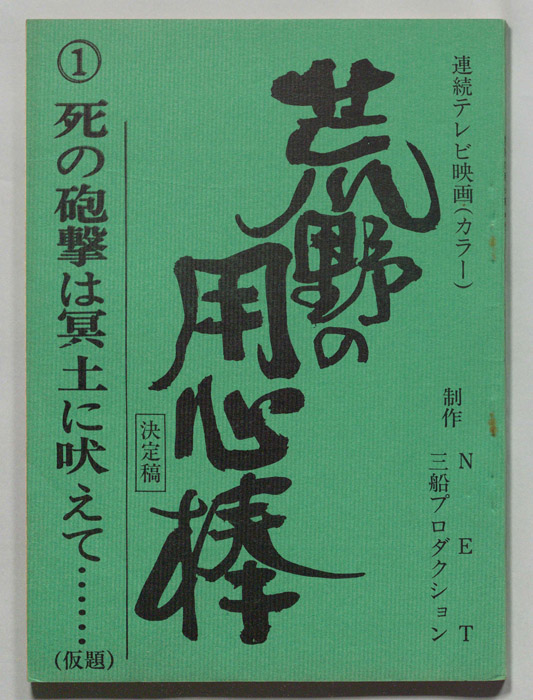 連続テレビ映画(カラー)
制作 NET
三船プロダクション
荒野の
用心棒
決定稿
① 死の砲撃は冥土に吠えて……
(仮題)